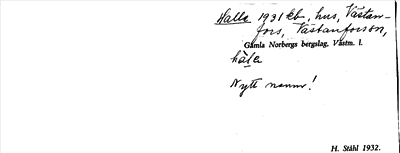 Halla 1931 kb, hus, Västan-
fors, Västanforson,
Gamla Norbergs bergslag, Västm. l.
håla
Nytt namn!
H. Ståhl 1932.